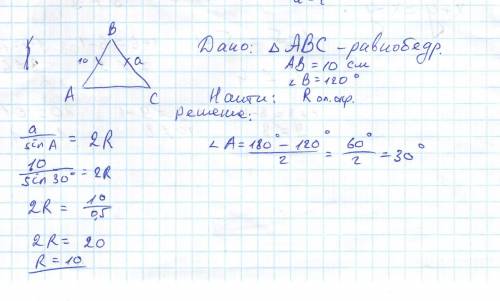 1.
B
10
a
A
C
Дано: △ABC - равнобедр.
AB = 10 см
∠B = 120°
Найти: R оп.окр.
решение:
∠A = (180° - 120°)/2 = 60°/2 = 30°
a/sin A = 2R
10/sin 30° = 2R
2R = 10/0,5
2R = 20
R = 10